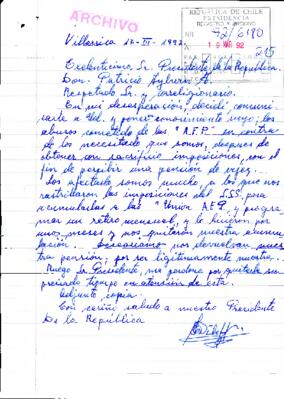 ARCHIVO
REPUBLICA DE CHILE
PRESIDENCIA
REGISTRO Y ARCHIVO
92/6190
19 MAR 92
Villarrica 12-III-1992
Excelentísimo Sr. Presidente de la República.
Don. Patricio Aylwin A.
Respetado Sr. y Correligionario.
En mi desesperación, decidí, comuni
carle a Ud. y poner conocimiento suyo; los
abusos cometido de las "A.F.P." en contra
de los necesitado que somos, después de
obtener con sacrificio imposiciones, con el
fin de percibir una pensión de vejez.
Los afectado somos mucho a los que nos
rastrillaron las imposiciones del S.S.S. para
acumularlas a las "Unión A.F.P. y progra
mar un retiro mensual, y lo hicieron por
unos meses y nos quitaron nuestra
lación. nos devuelvan nues
tra pensión; por ser legítimamente nuestra.
Ruego Sr. Presidente, me perdone por quitarle su
preciado tiempo en atención de esta.
Adjunto, copia.
Con cariño saludo a nuestro Presidente
De la República